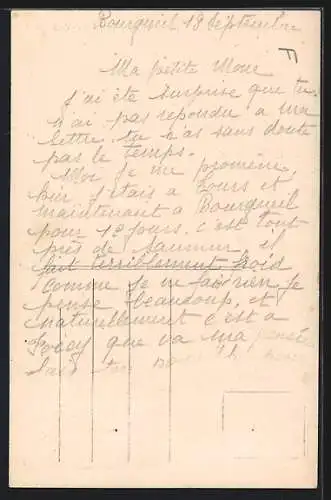 Bourgueil 18 Septembre
Ma petite
J'ai été surprise que tu
n'ai pas repondu a ma
lettre. tu n'as sans doute
pas le temps.
Moi je me promène,
hier j'étais a Tours et
maintenant a Bourgueil
pour 12 jours. c'est tout
près de Saumur, il
fait terriblement froid
Comme je m fais rien, je
pense beaucoup, et
naturellement c'est a
que va ma pensée